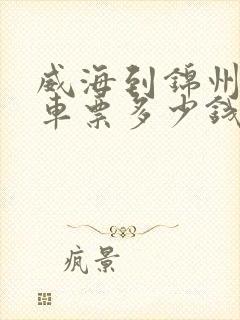 威海到锦州
车票多少钱
疯景